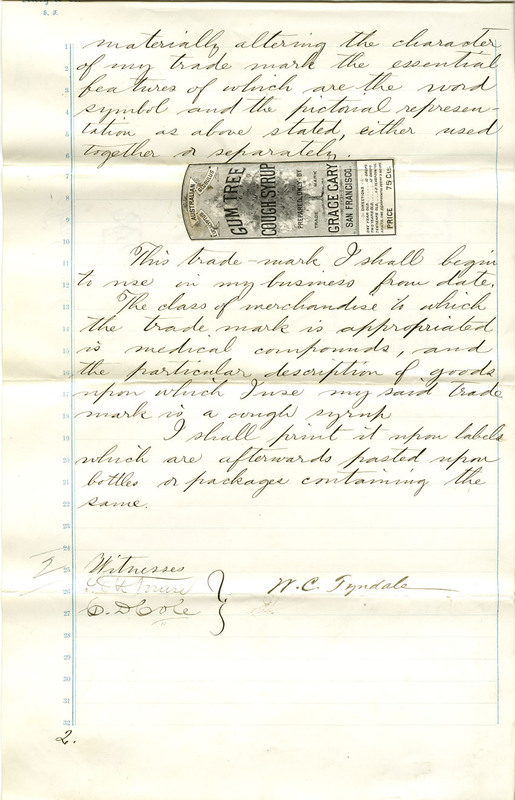 S. 3.
materially altering the character
of my trade mark the essential
features of which are the word
symbol and the pictorial represen-
tation as above stated, either used
together or separately.
AUSTRALIAN
GUM TREE
COUGH SYRUP
PREPARED ONLY BY
TRADE MARK
GRACE GARY
SAN FRANCISCO.
DIRECTIONS
PRICE 75 Cts.
This trade-mark I shall begin
to use in my business from date.
The class of merchandise to which
the trade mark is appropriated
is medical compounds, and
the particular description of goods
upon which I use my said trade
mark is a cough syrup
I shall print it upon labels
which are afterwards pasted upon
bottles or packages containing the
same.
Witnesses
W. C. Tyndale
C. D. Cole
2.
1
2
3
4
5
6
7
8
9
10
11
12
13
14
15
16
17
18
19
20
21
22
23
24
25
26
27
28
29
30
31
32